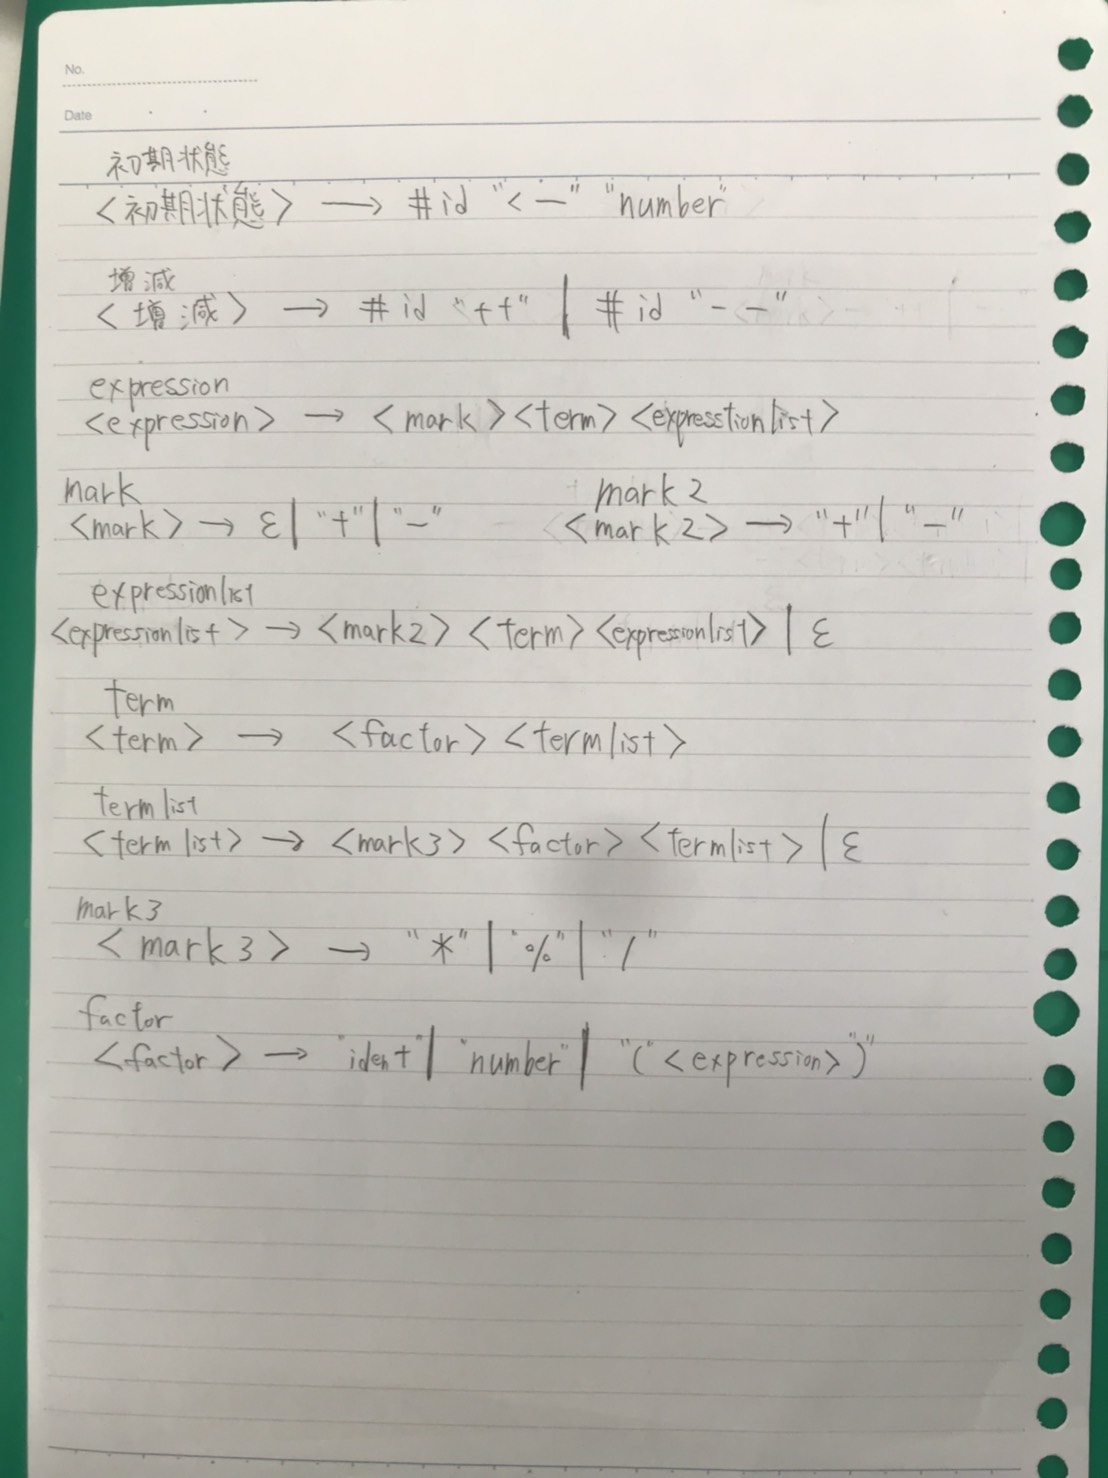 No.
Date
初期状態
<初期状態> → #id "<—" "number"
増減
<増減> → #id "++" | #id "--"
expression
<expression> → <mark><term><expresstionlist>
mark
<mark> → ε | "+" | "-"
mark2
<mark2> → "+" | "-"
expressionlist
<expressionlist> → <mark2><term><expressionlist> | ε
term
<term> → <factor><termlist>
termlist
<termlist> → <mark3><factor><termlist> | ε
mark3
<mark3> → "*" | "%" | "/"
factor
<factor> → "ident" | "number" | "(" <expression> ")"